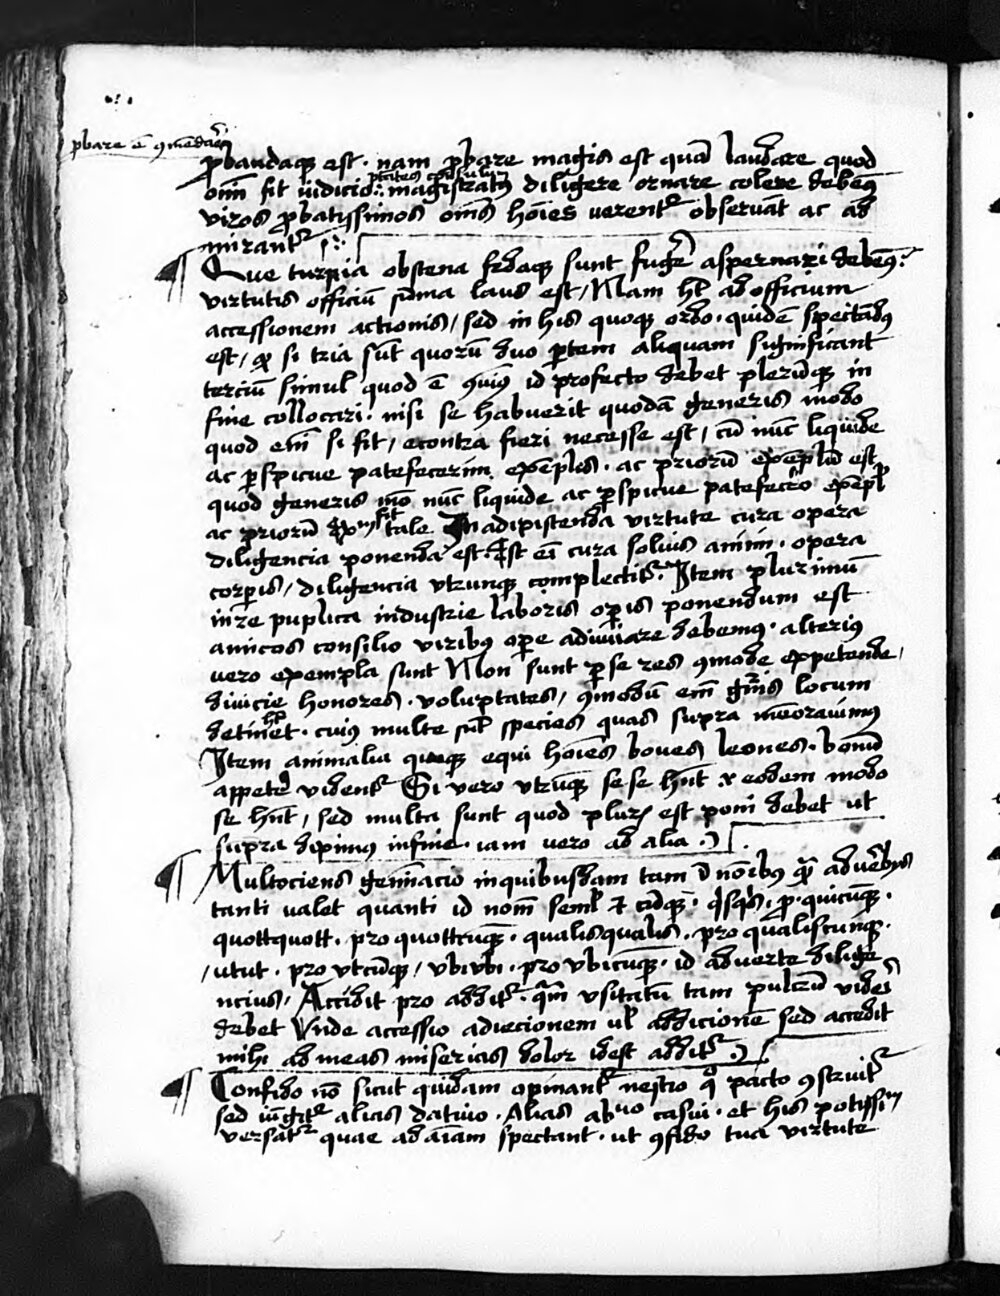 ꝓbare ē ꝯmēdar̄
ꝓbandaqꝫ est · nam ꝓbare magis est quā laudare quod
om̄ fit iudicio · magistratꝯ diligere ornare colere debemꝰ
viros ꝓbatissimos om̄s hoīes verentᷣ obseruāt ac ad
mirantᷣ
Que turpia obscena fedaqꝫ sunt fugere aspernari debemꝰ
virtutis officiū sūma laus est / Nam hꝫ ad officium
accessionem actionis / sed in his quoqꝫ ordo · quidē spectādꝰ
est / qꝫ si tria sūt quorū duo ꝑtem aliquam significant
terciū simul quod ē id profecto debet plerūqꝫ in
fine collocari · nisi se habuerit quodā generis modo
quod em̄ si fit / econtra fieri necesse est / cū nūc liquide
ac ꝑspicue patefecerim exēplis · ac priorū exēplū est
quod generis mō nūc liquide ac ꝑspicue patefecero exēpl
ac priorū fit tale In adipiscenda virtute cura opera
diligencia ponenda est Est ei cura solius animi · opera
corꝑis / diligencia vtrunqꝫ complectitᷣ · Item plurimū
in re puplica industrie laboris oꝑis ponendum est
amicos consilio viribꝰ oꝑe adiuuare debemus · alterius
vero exempla sunt Non sunt ꝑ se res ꝯmode expetende /
diuicie honores · voluptates / ꝯmodū em̄ gn̄is locum
detinet · cuiꝰ multe sūt species quas supra mēorauimꝰ
Item animalia queqꝫ equi hoīes boues leones · bonū
appetere videntᷣ Si vero vtrūqꝫ sese hn̄t eodem modo
se hn̄t / sed multa sunt quod plurꝭ est poni debet ut
supra diximus in fine · iam vero ad alia ·
Multociens geminacio in quibusdam tam nōībꝰ qꝫ aduerbijs
tanti valet quanti id nom̄ semel cūqꝫ · qͥsqͥs · ꝓ quicūqꝫ ·
quotquott · pro quottcūqꝫ · qualisqualis · pro qualiscunqꝫ ·
/ utut · pro vtcūqꝫ / vbivbi · pro vbicūqꝫ · id aduerte dilige
ncius / Accidit pro additᷣ · qm̄ vsitatū tam pulcrū videri
debet Vnde accessio adiecionem ul̄ addicionē sed accedit
mihi ad meas miserias dolor idest additᷣ
Confido nō sicut quidam opinantᷣ nescio qͦ pacto ꝯstruitᷣ
sed iūgitᷣ alias datiuo · Alias abᵘᵒ casui · et his potissīm
versatᷣ quae ad aīam spectant · ut ꝯfido tua virtute